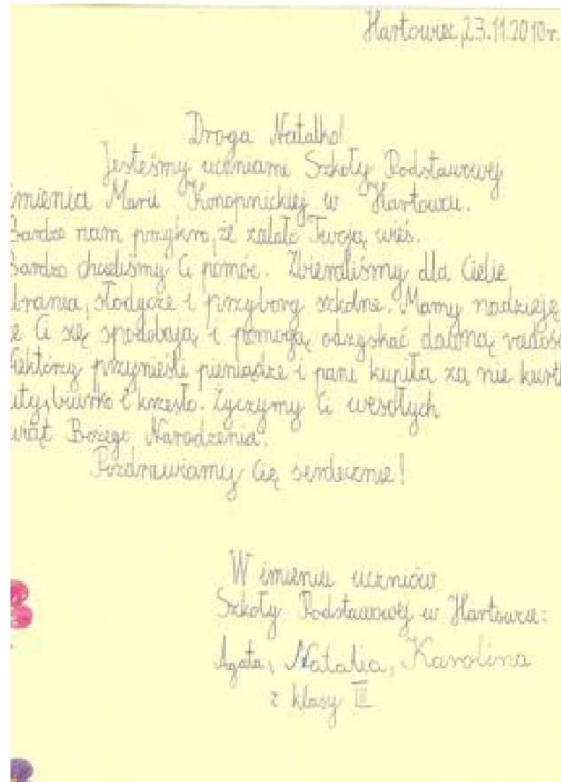 Hartowiec, 23.11.2010r.
Droga Natalko!
Jesteśmy uczniami Szkoły Podstawowej
imienia Marii Konopnickiej w Hartowcu.
Bardzo nam przykro, że zalało Twoją wieś.
Bardzo chcieliśmy Ci pomóc. Zbieraliśmy dla Ciebie
ubrania, słodycze i przybory szkolne. Mamy nadzieję,
że Ci się spodobają i pomogą odzyskać dawną radość
Niektórzy przynieśli pieniądze i pani kupiła za nie kurtk
uty, biurko i krzesło. Życzymy Ci wesołych
wiąt Bożego Narodzenia.
Pozdrawiamy Cię serdecznie!
W imieniu uczniów
Szkoły Podstawowej w Hartowcu:
Agata, Natalia, Karolina
z klasy III